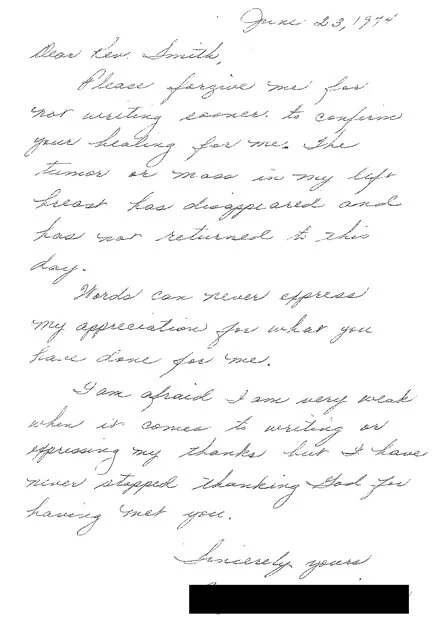 June 23, 1974
Dear Rev. Smith,
Please forgive me for
not writing sooner to confirm
your healing for me. The
tumor or mass in my left
breast has disappeared and
has not returned to this
day.
Words can never express
my appreciation for what you
have done for me.
I am afraid I am very weak
when it comes to writing or
expressing my thanks but I have
never stopped thanking God for
having met you.
Sincerely yours